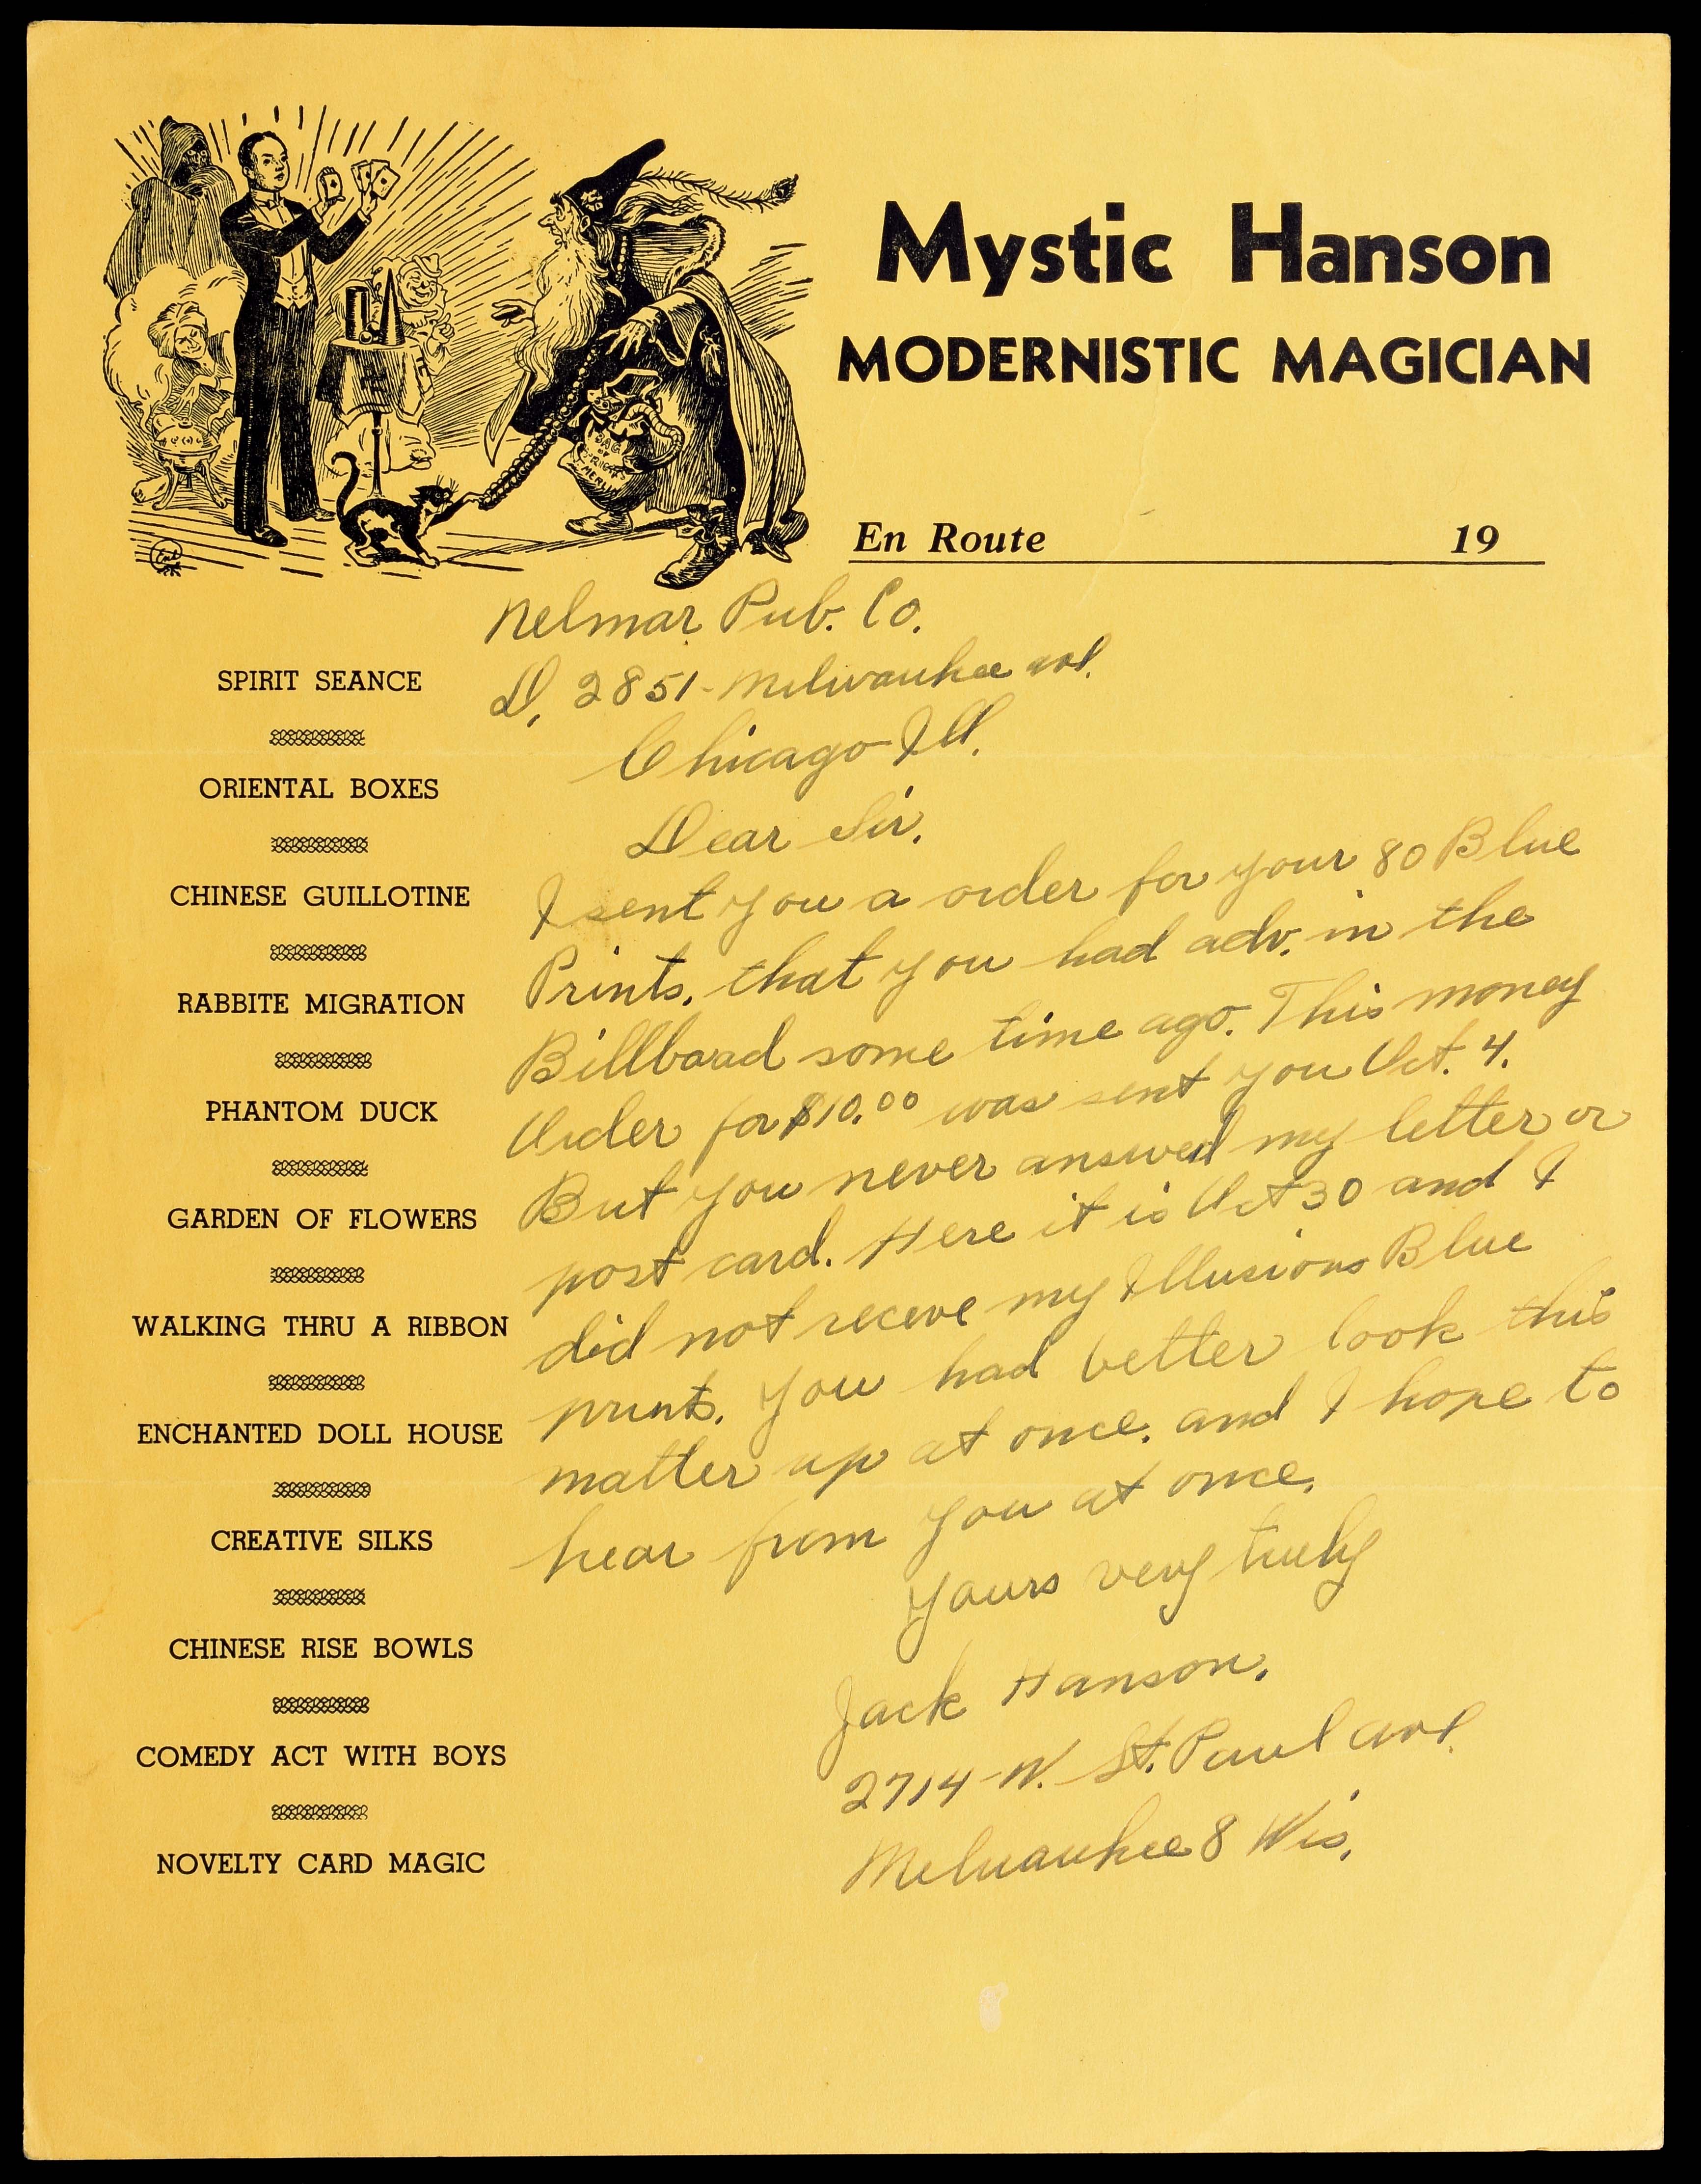 Mystic Hanson
MODERNISTIC MAGICIAN
BAG
OF
TRICKS
MERLIN
En Route 19
SPIRIT SEANCE
ORIENTAL BOXES
CHINESE GUILLOTINE
RABBITE MIGRATION
PHANTOM DUCK
GARDEN OF FLOWERS
WALKING THRU A RIBBON
ENCHANTED DOLL HOUSE
CREATIVE SILKS
CHINESE RISE BOWLS
COMEDY ACT WITH BOYS
NOVELTY CARD MAGIC
Nelmar Pub. Co.
D, 2851-Milwaukee ave.
Chicago Ill.
Dear Sir,
I sent you a order for your 80 Blue
Prints, that you had adv. in the
Billboard some time ago. This money
Order for $10.00 was sent you Oct. 4.
But you never answed my letter or
post card. Here it is Oct 30 and I
did not receve my Illusions Blue
prints. You had better look this
matter up at once. and I hope to
hear from you at once.
Yours very truly
Jack Hanson.
2714-W. St. Paul ave.
Milwaukee 8 Wis.